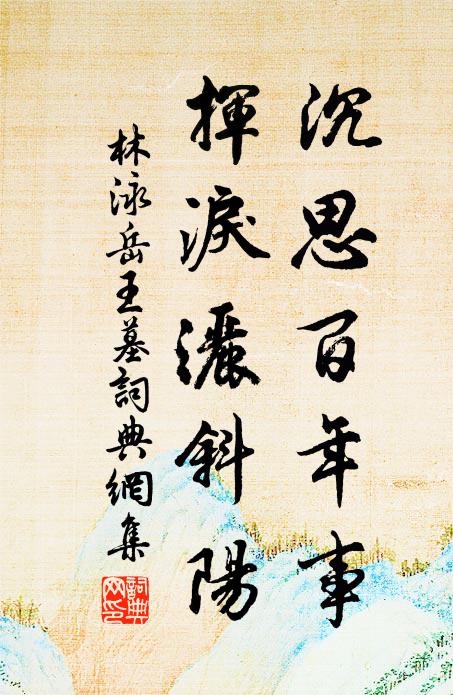 沉思百年事
揮淚灑斜陽
林泳岳王墓詞典網集
詞典網印